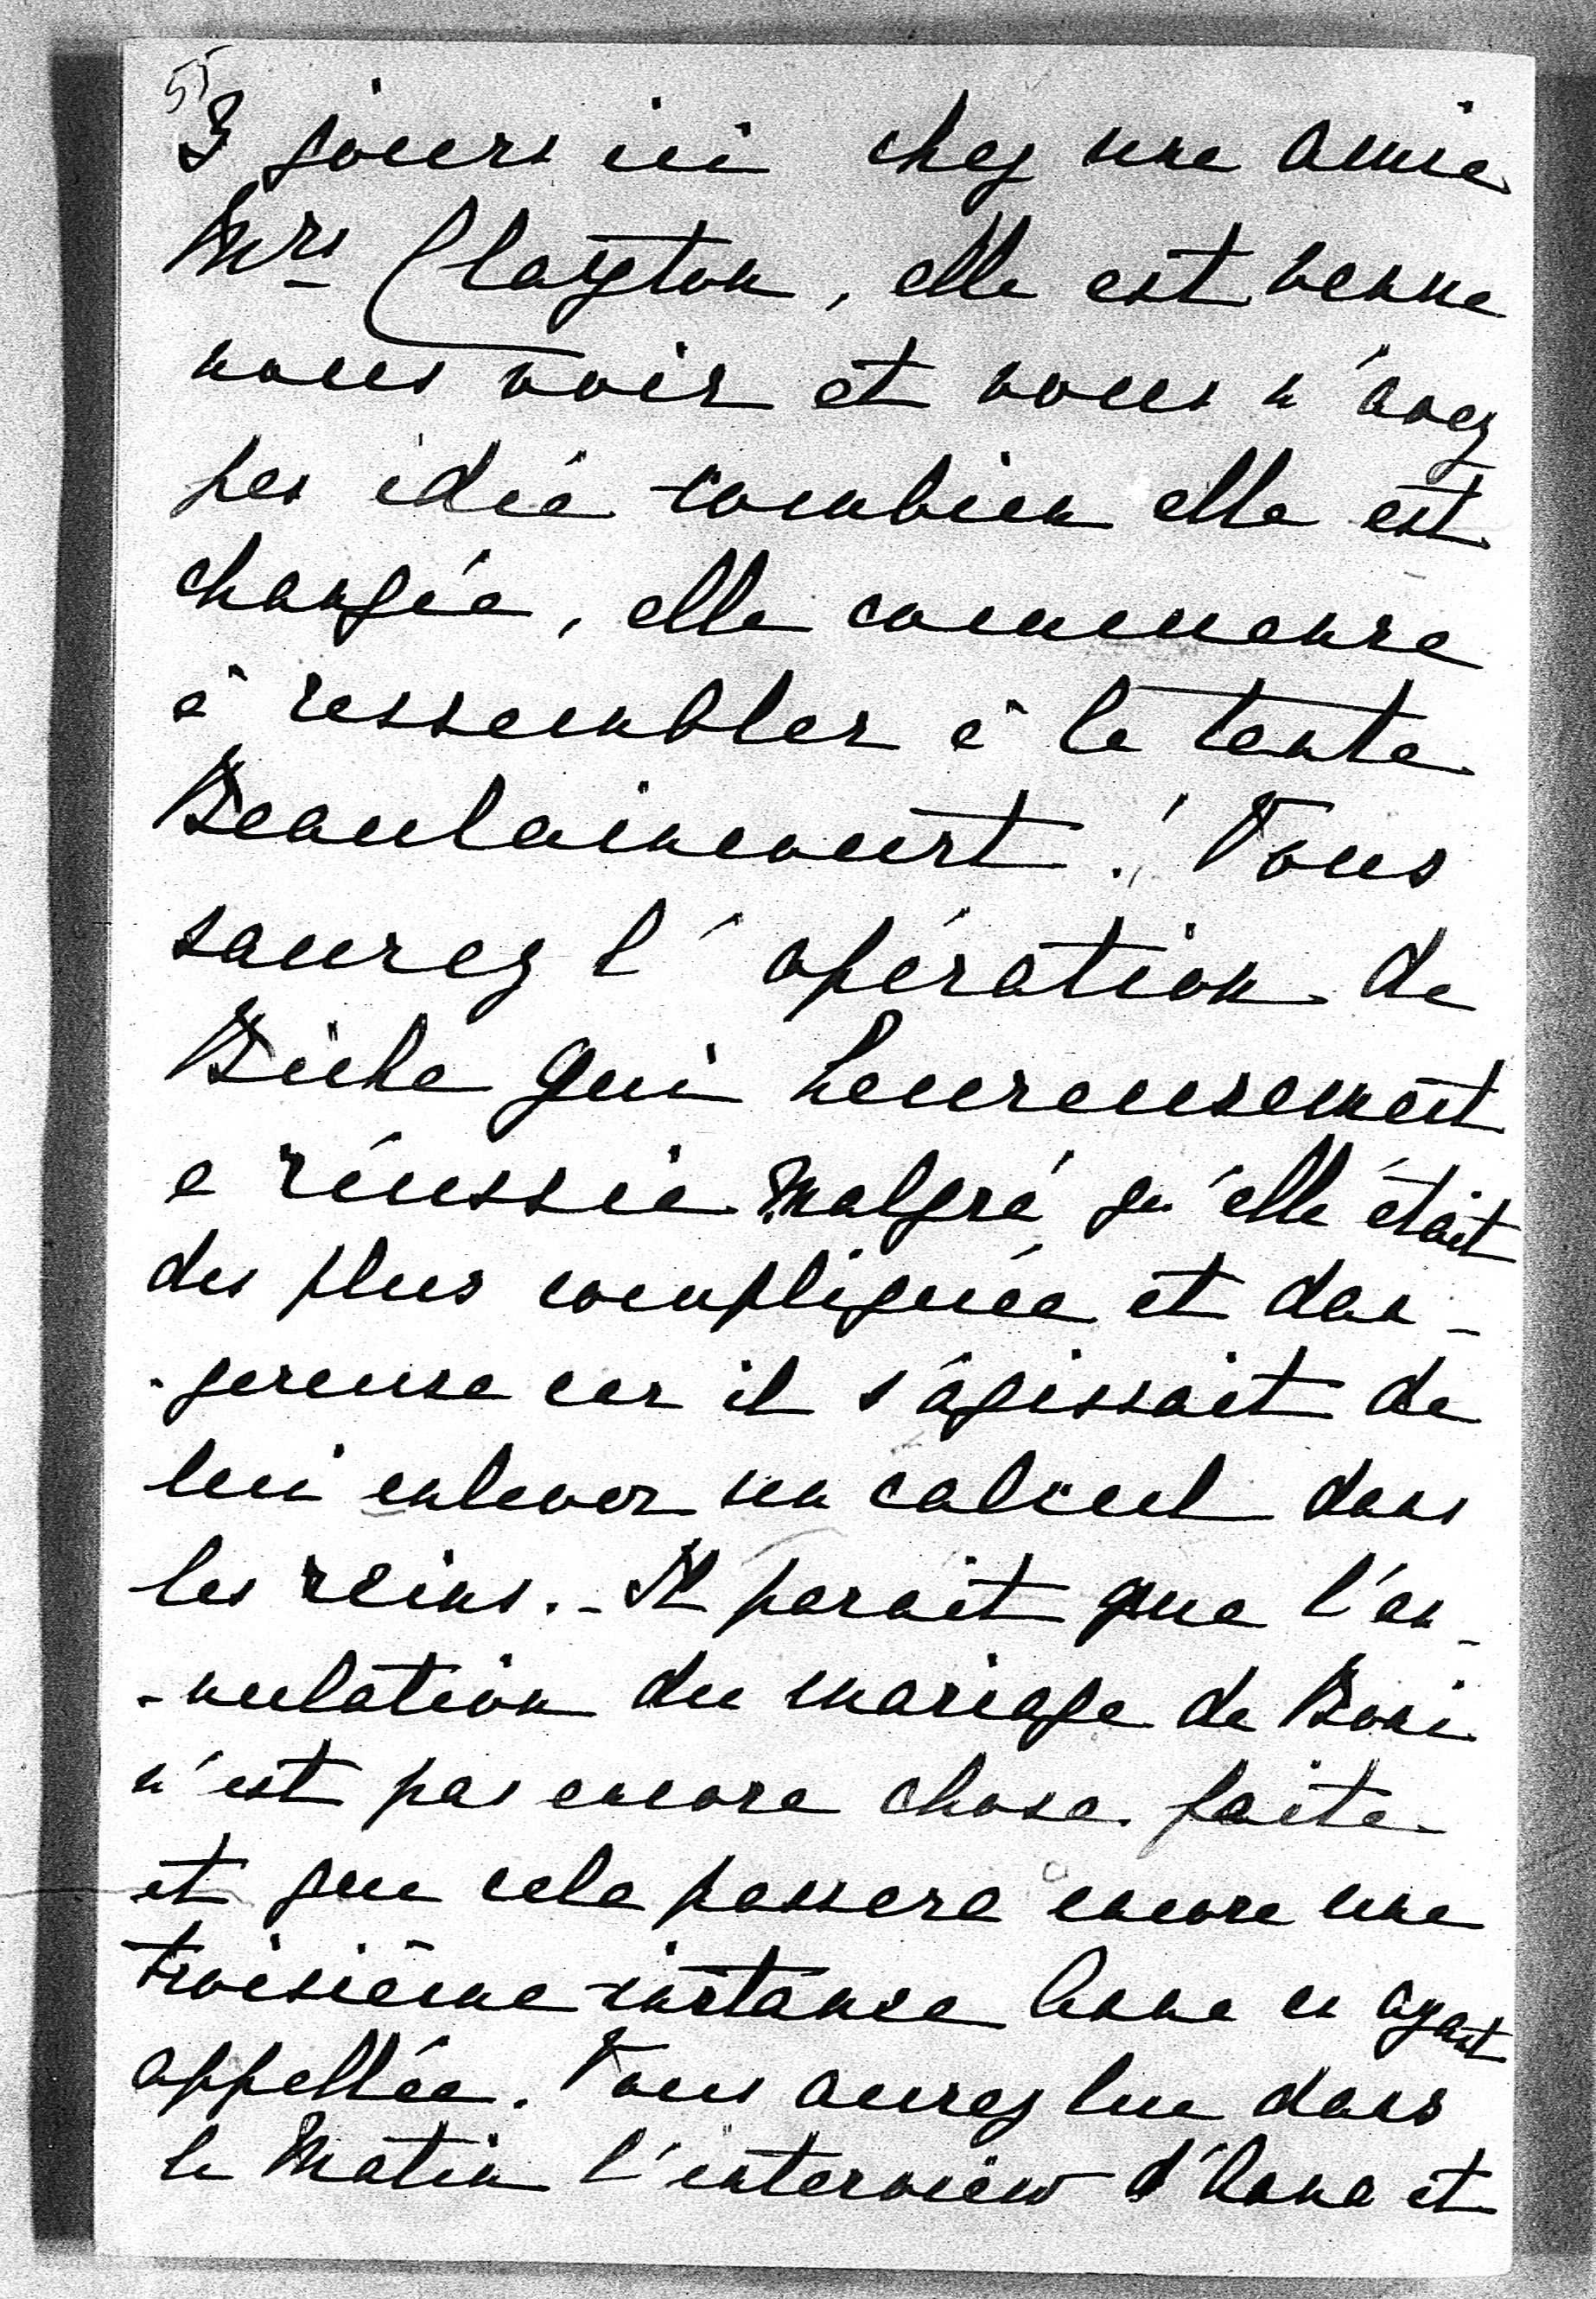 55
3 jours ici chez une amie
Mrs Clayton, elle est venue
nous voir et vous n'avez
pas idée combien elle est
changée, elle commence
à ressembler à la tante
Beaulaincourt! Vous
saurez l'opération de
Biche qui heureusement
a réussie malgré qu'elle était
des plus compliquée et dan-
-gereuse car il s'agissait de
lui enlever un calcul dans
les reins. - Il parait que l'an-
-nulation du mariage de Boni
n'est pas encore chose faite
et que cela passera encore une
troisième instance Anna en ayant
appellée. Vous aurez lue dans
le Matin l'interview d'Anna et